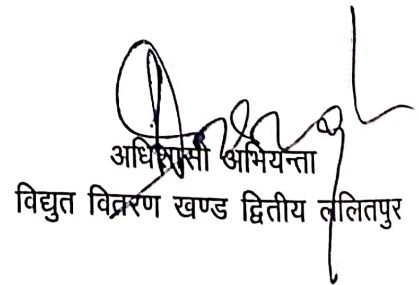 अधिशासी अभियन्ता
विद्युत वितरण खण्ड द्वितीय ललितपुर